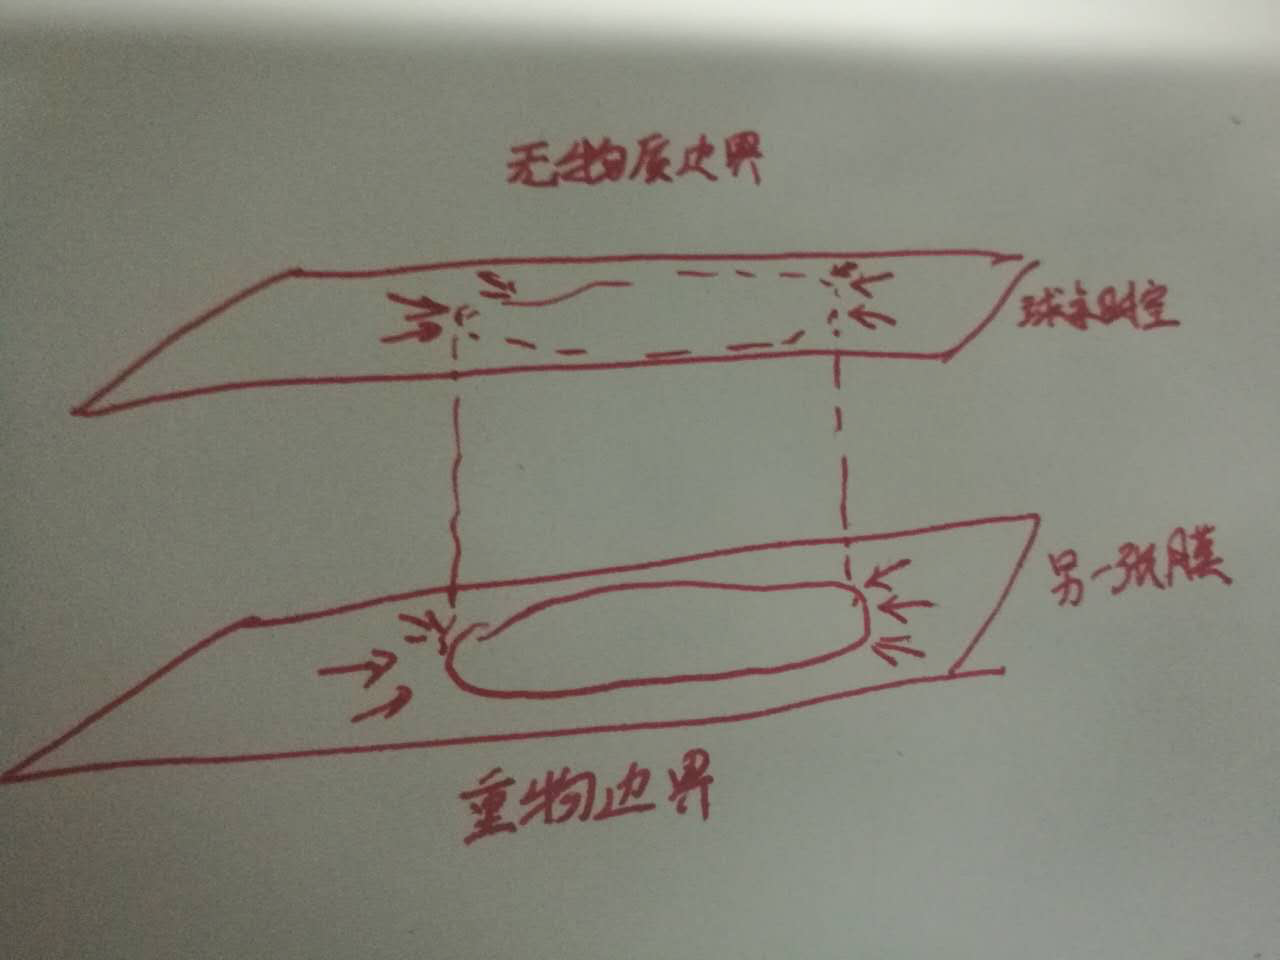 无物质边界
球末时空
另一张膜
重物边界